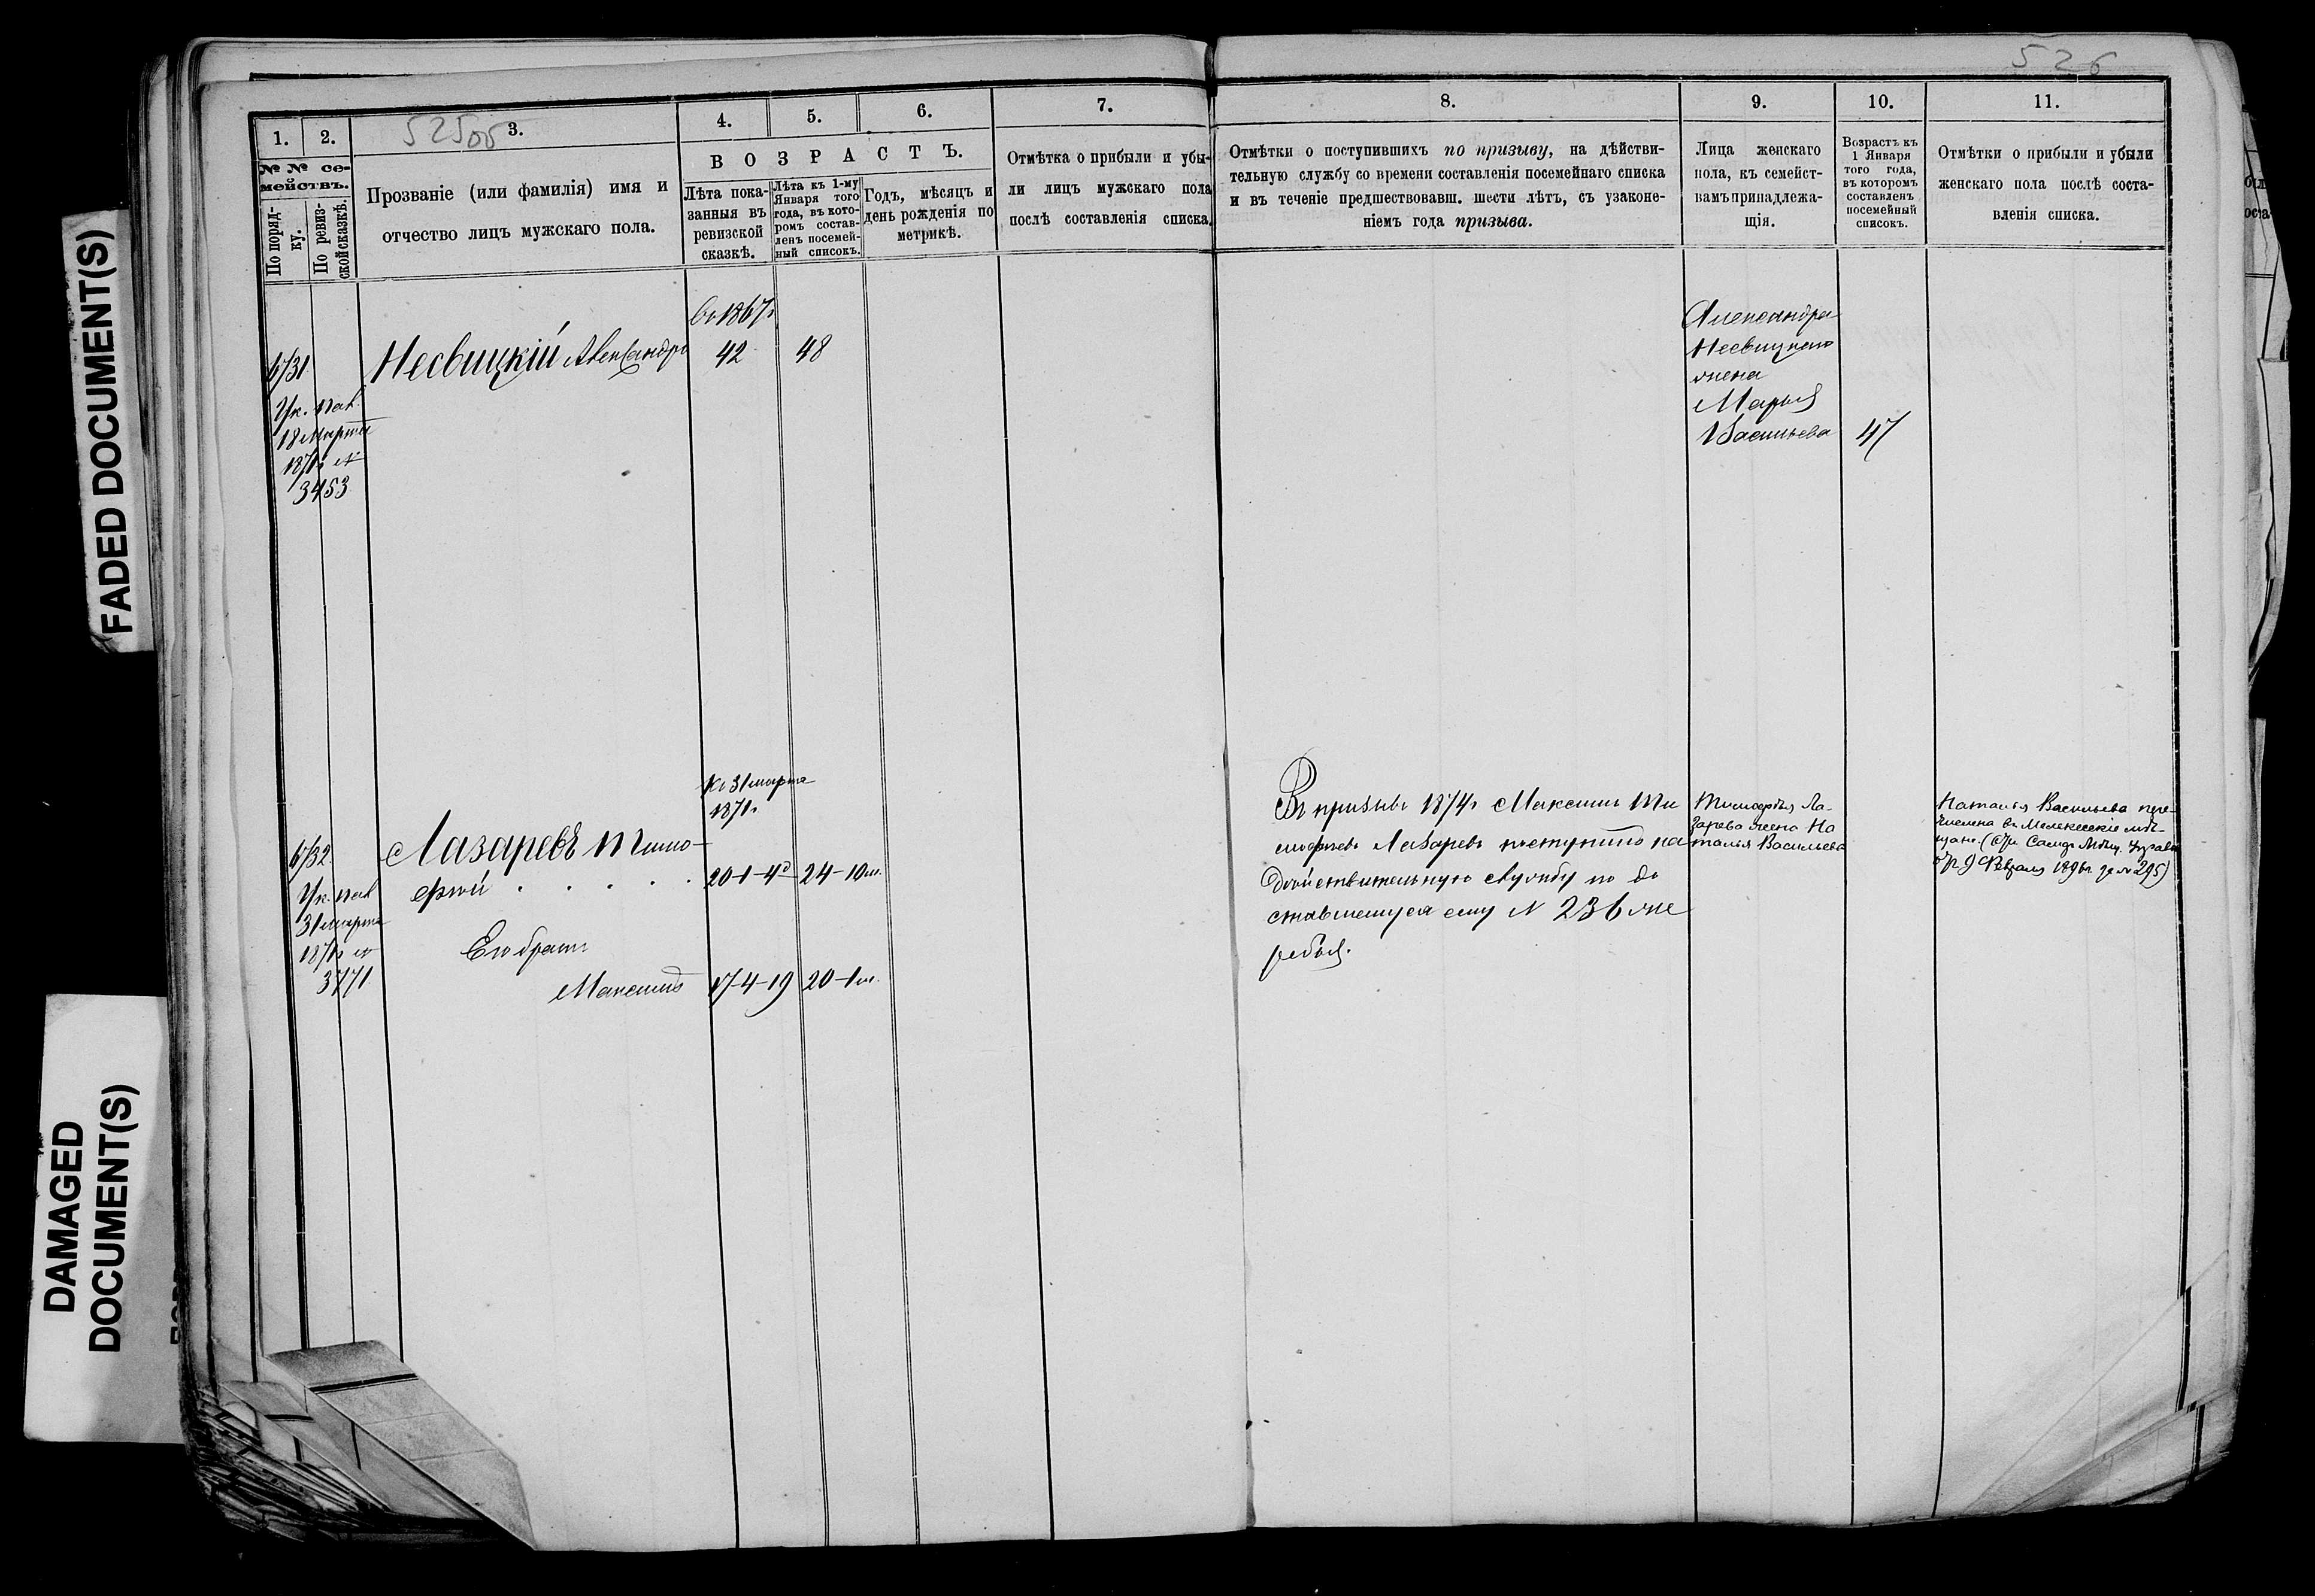 FADED DOCUMENT(S)
DAMAGED
DOCUMENT(S)
525об
526
1.
2.
3.
4.
5.
6.
7.
8.
9.
10.
11.
№ № се-
мействъ.
По поряд-
ку.
По ревиз-
ской сказкѣ.
Прозваніе (или фамилія) имя и
отчество лицъ мужскаго пола.
ВОЗРАСТЪ.
Лѣта пока-
занныя въ
ревизской
сказкѣ.
Лѣта къ 1-му
Января того
года, въ кото-
ромъ состав-
ленъ посемей-
ный списокъ.
Годъ, мѣсяцъ и
день рожденія по
метрикѣ.
Отмѣтка о прибыли и убы-
ли лицъ мужскаго пола
послѣ составленія списка.
Отмѣтки о поступившихъ по призыву, на дѣйстви-
тельную службу со времени составленія посемейнаго списка
и въ теченіе предшествовавш. шести лѣтъ, съ узаконе-
ніемъ года призыва.
Лица женскаго
пола, къ семейст-
вамъ принадлежа-
щія.
Возрастъ къ
1 Января
того года,
въ которомъ
составленъ
посемейный
списокъ.
Отмѣтки о прибыли и убыли
женскаго пола послѣ соста-
вленія списка.
Въ 1867г
Несвицкій Александръ
42
48
Ук. Пал.
18 Марта
1871г №
3453
Александра
Несвицкаго
жена
Марья
Васильева
47
Къ 31 марта
1871г.
Лазаревъ Тимо-
фей
20-1-4д
24-10м.
Ук. Пал
31 Марта
1871г №
3771
Его братъ
Максимъ
17-4-19
20-1м.
Въ призывъ 1874г Максимъ Ти
мофеевъ Лазаревъ поступилъ на
дѣйствительную службу по до
ставшемуся ему № 236 же
ребья.
Тимофея Ла-
зарева жена На
талья Васильева
Наталья Васильева пере-
числена въ Мелекесскіе мѣ-
щане (Отн. Самар. Мѣщ. Управы
отъ 9 Февраля 1896г за № 295)